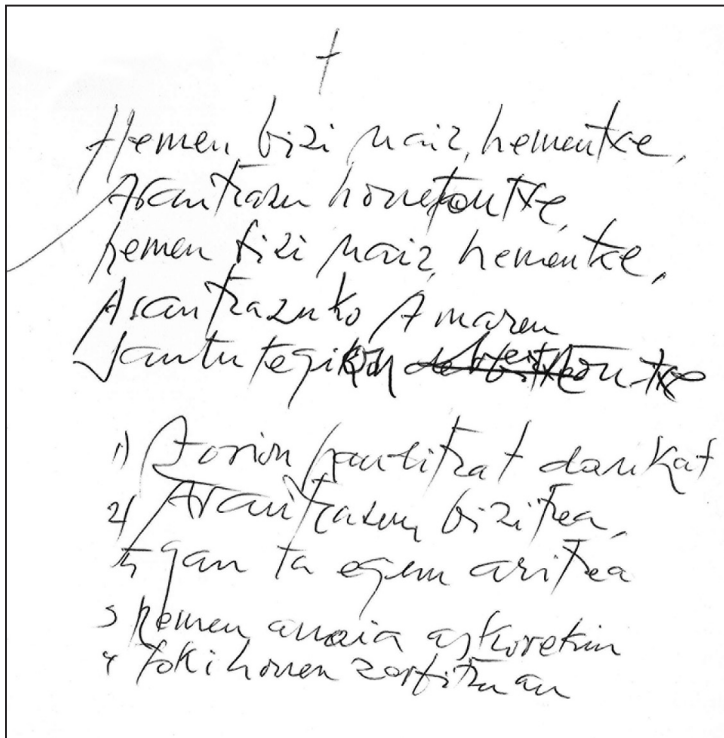 Hemen bizi naiz, hementxe,
Arantzazu honetontxe,
hemen bizi naiz, hementxe,
Arantzazuko Amaren
Santutegi
1) Zorion handitzat daukat
2) Arantzazun bizitzea,
5 jan ta egin aritzea
3 hemen anaia askorekin
4 toki honen zerbitzuan